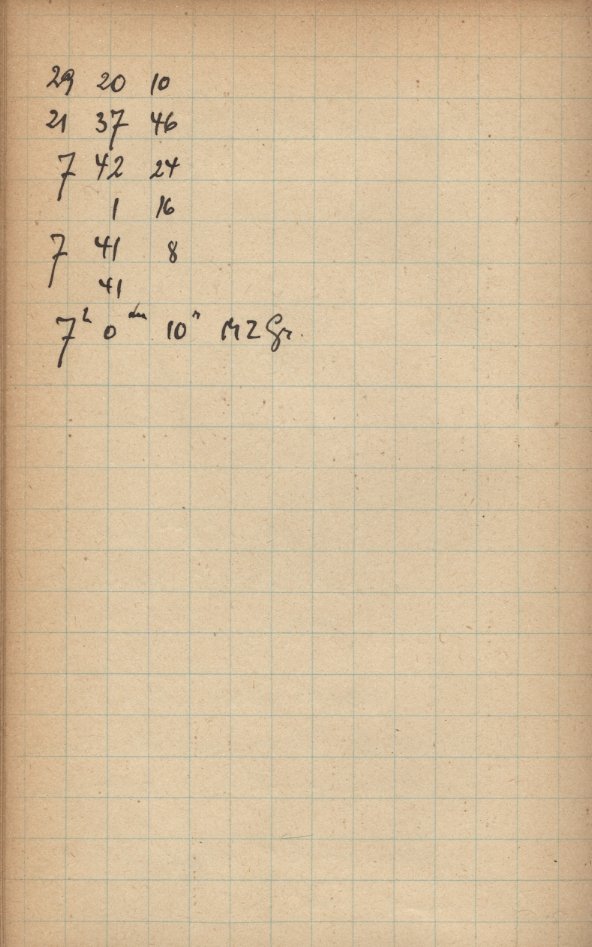 29 20 10
21 37 46
7 42 24
1 16
7 41 8
41
7h 0m 10s MZGr.